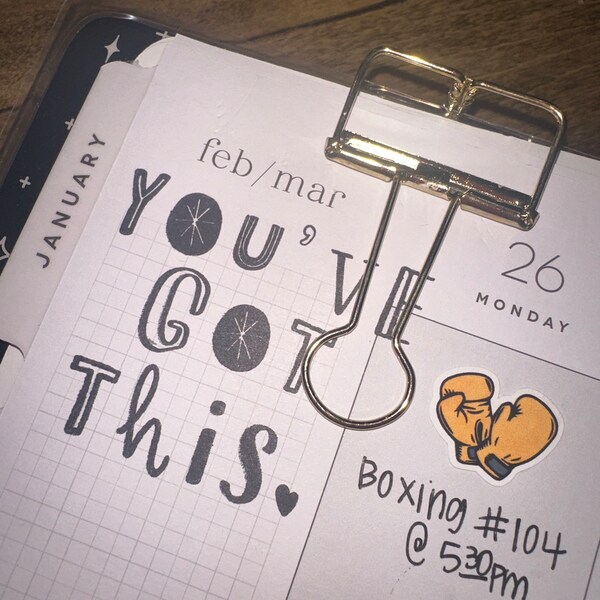 JANUARY
feb/mar
YOU'VE
GOT
This.
26
MONDAY
BOXING #104
@ 530pm